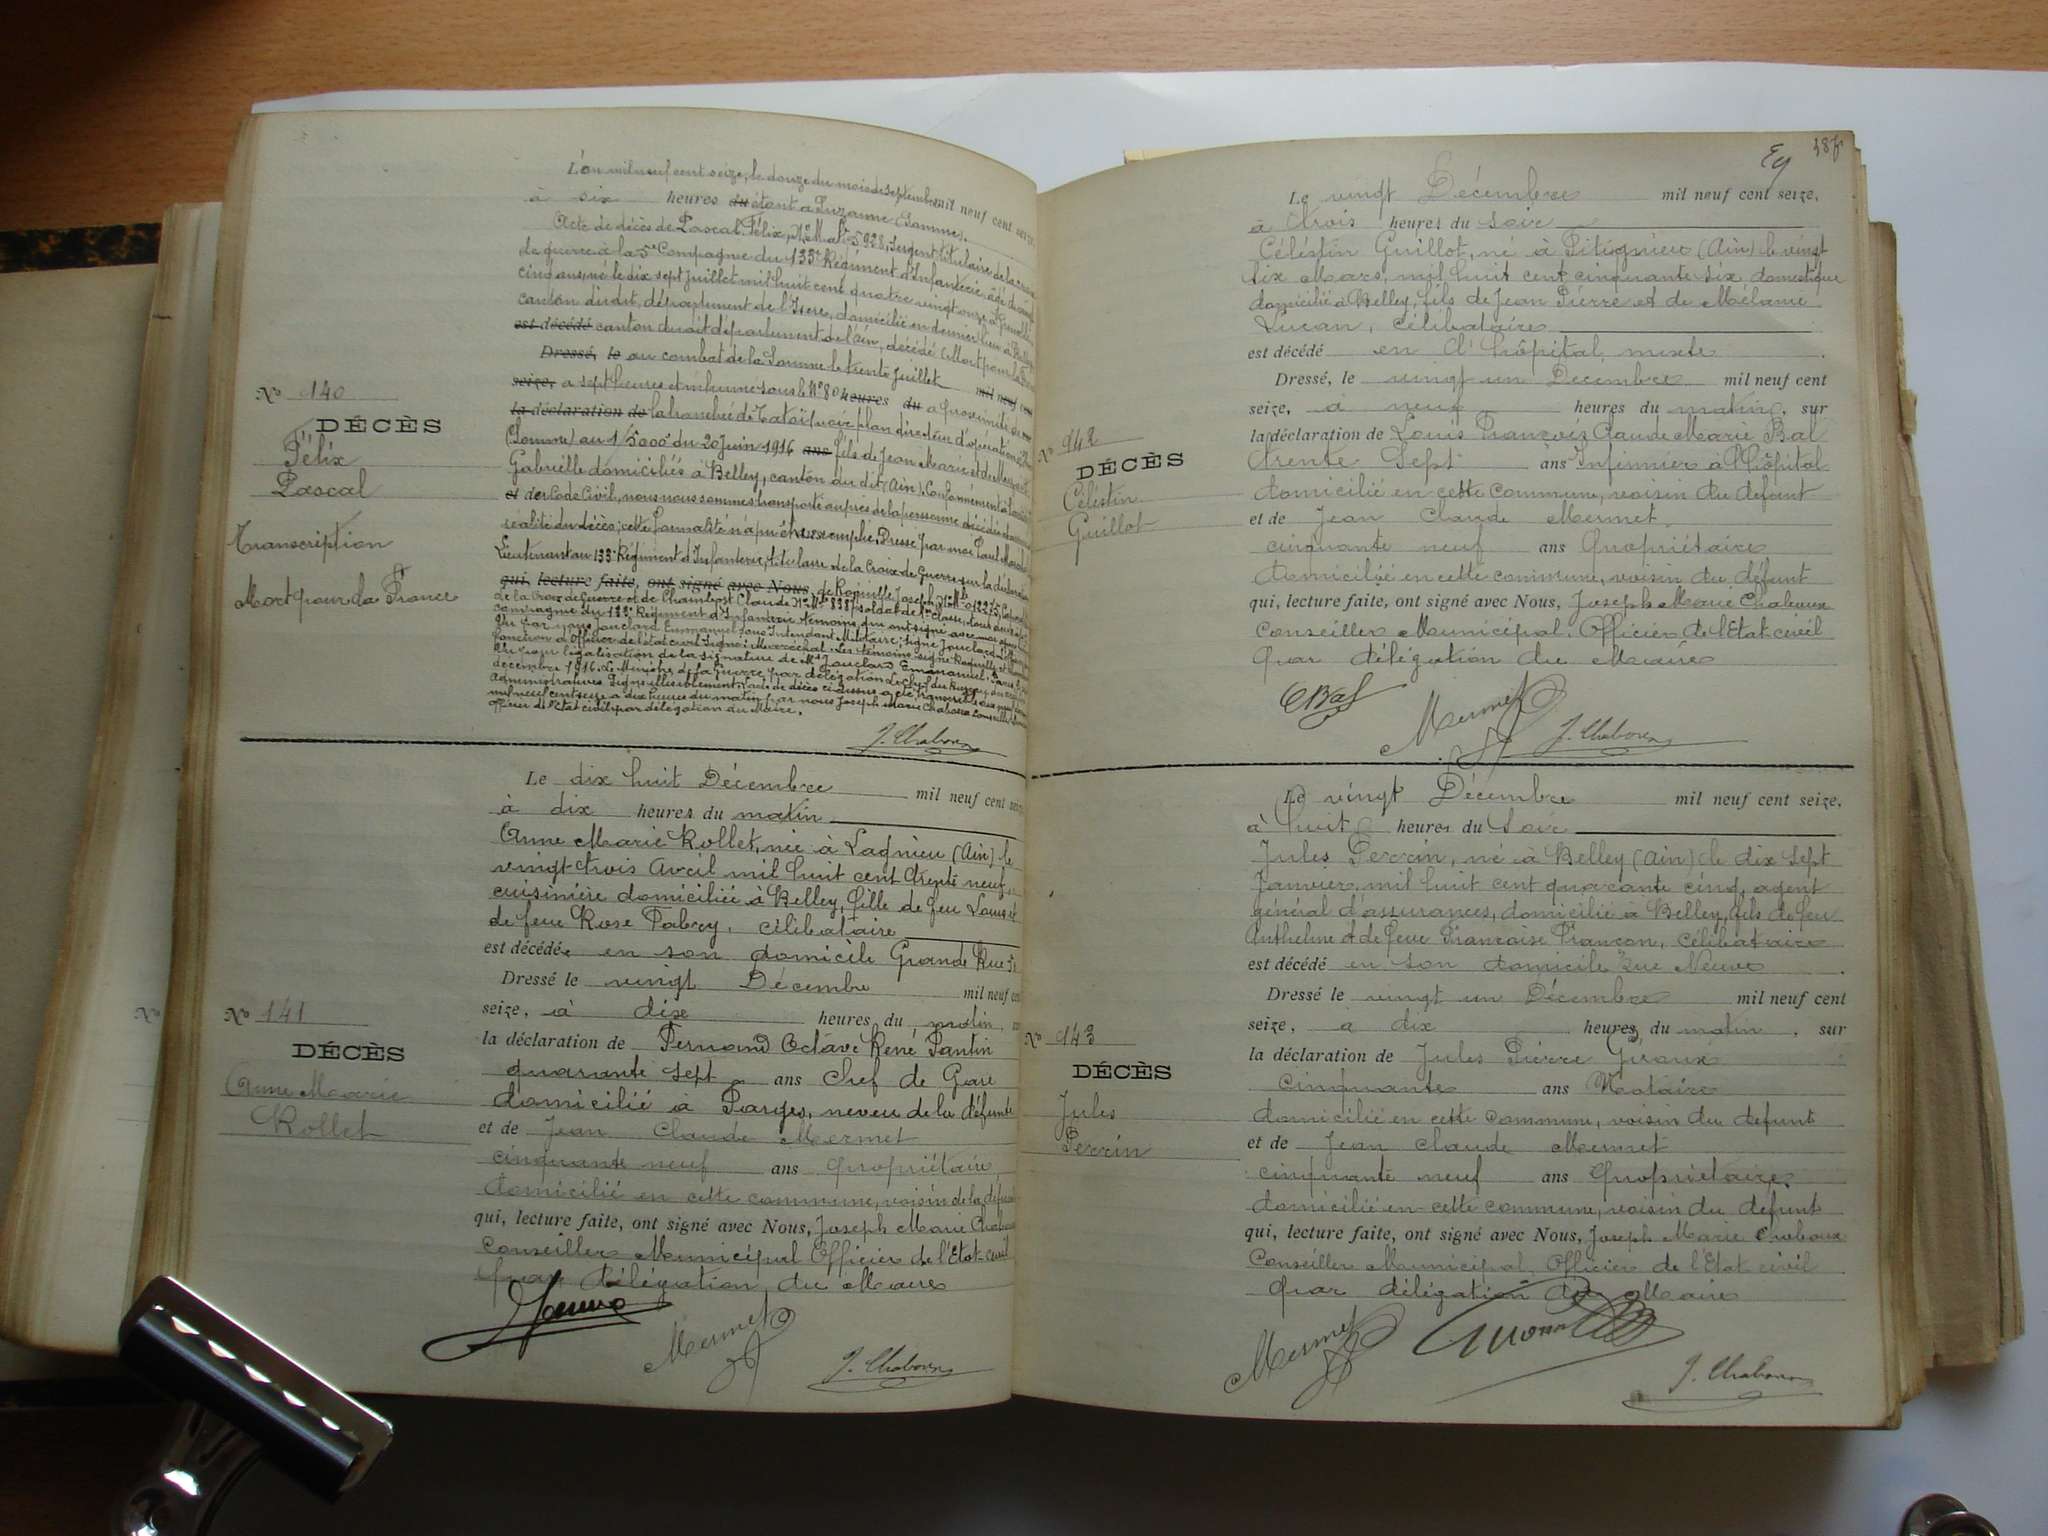 L'an mil neuf cent seize, le douze du mois de septembre mil neuf cent seize,
à six heures du étant à Suzanne (Somme).
Acte de décès de Pascal Félix, N° Mle 5928, Sergent titulaire de la croix
de guerre à la 5e Compagnie du 133e Régiment d'Infanterie, âgé de vingt
cinq ans, né le dix sept Juillet mil huit cent quatre vingt onze à
canton du dit, département de l'Isère, domicilié en dernier lieu à Belley
est décédé canton du dit département de l'Ain, décédé (Mort pour la France)
Dressé, le au combat de la Somme le trente Juillet mil neuf cent
seize, à sept heures et inhumé sous le N° 80 heures du à proximité de
la déclaration de la tranchée de Tatoï (voir plan directeur d'opérations
(Somme) au 1/5000e du 20 Juin 1916 ans fils de Jean Marie et de
Gabrielle domiciliés à Belley, canton du dit (Ain). Conformément à
et de du Code Civil, nous nous sommes transporté auprès de la personne décédée
réalité du décès; cette formalité n'a pu être remplie. Dressé par moi Paul
Lieutenant au 133e Régiment d'Infanterie, titulaire de la Croix de Guerre sur la déclaration
qui, lecture faite, ont signé avec Nous, de Joseph, N° Mle
de la Croix de Guerre et de Chambost Claude N° Mle soldat de 1ère classe, tous deux
compagnie du 133e Régiment d'Infanterie témoins, qui ont signé avec moi
Vu par nous Jouclard Emmanuel Sous Intendant Militaire; signé Jouclard
fonction d'Officier de l'état civil signé: Les témoins signé
Vu pour légalisation de la signature de Mr Jouclard Emmanuel. Paris le
décembre 1916. Le Ministre de la Guerre, par délégation Le chef du Bureau des
Administratives Signé illisiblement. L'acte de décès ci-dessus a été transcrit le
mil neuf cent seize à dix heures du matin par nous Joseph Marie Chaboux Conseiller
officier de l'état civil par délégation du Maire.
J. Chaboux
N° 140
DÉCÈS
Félix
Pascal
Transcription
Mort pour la France
Le dix huit Décembre mil neuf cent seize
à dix heures du matin
Anne Marie Rollet, née à Lagnieu (Ain) le
vingt trois Avril mil huit cent trente neuf,
cuisinière domiciliée à Belley, fille de feu Louis et
de feue Rose Fabry, célibataire
est décédée en son domicile Grande Rue
Dressé le vingt Décembre mil neuf cent
seize, à dix heures du matin, sur
la déclaration de Fernand Octave René Pantin
quarante sept ans Chef de Gare
domicilié à Parges, neveu de la défunte
et de Jean Claude Mermet
cinquante neuf ans propriétaire
domicilié en cette commune, voisin de la défunte
qui, lecture faite, ont signé avec Nous, Joseph Marie Chaboux
Conseiller Municipal Officier de l'Etat-civil
par délégation du Maire
Mermet
J. Chaboux
N° 141
DÉCÈS
Anne Marie
Rollet
Ey 187
Le vingt Décembre mil neuf cent seize,
à trois heures du soir
Célestin Guillot, né à Pitignieu (Ain) le vingt
six Mars mil huit cent cinquante six domestique
domicilié à Belley, fils de Jean Pierre et de Mélanie
Lucan, célibataire
est décédé en l'hôpital mixte
Dressé, le vingt un Décembre mil neuf cent
seize, à neuf heures du matin, sur
la déclaration de Louis François Claude Marie Bal
trente sept ans Infirmier à l'Hôpital
domicilié en cette commune, voisin du défunt
et de Jean Claude Mermet,
cinquante neuf ans propriétaire
domicilié en cette commune, voisin du défunt
qui, lecture faite, ont signé avec Nous, Joseph Marie Chaboux
Conseiller Municipal Officier de l'Etat-civil
par délégation du Maire
Bal
Mermet
J. Chaboux
N° 142
DÉCÈS
Célestin
Guillot
Le vingt Décembre mil neuf cent seize,
à huit heures du soir
Jules Perrin, né à Belley (Ain) le dix sept
Janvier mil huit cent quarante cinq, agent
général d'assurances, domicilié à Belley, fils de feu
Anthelme et de feue Françoise Françon, célibataire
est décédé en son domicile rue Neuve
Dressé le vingt un Décembre mil neuf cent
seize, à dix heures du matin, sur
la déclaration de Jules Pierre Giroux
cinquante ans Notaire
domicilié en cette commune, voisin du défunt
et de Jean Claude Mermet
cinquante neuf ans propriétaire
domicilié en cette commune, voisin du défunt
qui, lecture faite, ont signé avec Nous, Joseph Marie Chaboux
Conseiller Municipal, Officier de l'Etat civil
par délégation du Maire
Mermet
J. Chaboux
N° 143
DÉCÈS
Jules
Perrin
N°